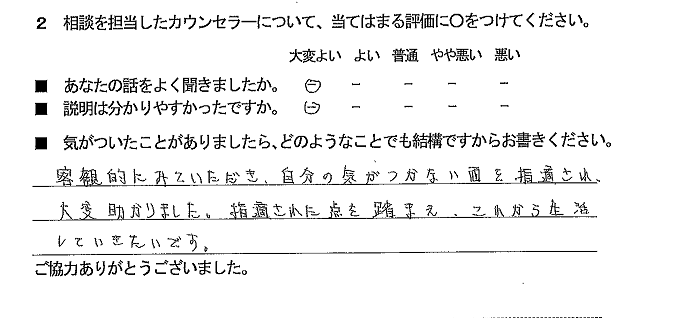 2 相談を担当したカウンセラーについて、当てはまる評価に○をつけてください。
大変よい よい 普通 やや悪い 悪い
■ あなたの話をよく聞きましたか。 － － － － －
■ 説明は分かりやすかったですか。 － － － － －
■ 気がついたことがありましたら、どのようなことでも結構ですからお書きください。
客観的にみていただき、自分の気がつかない面を指適され、
大変助かりました。指適された点を踏まえ、これから生活
していきたいです。
ご協力ありがとうございました。